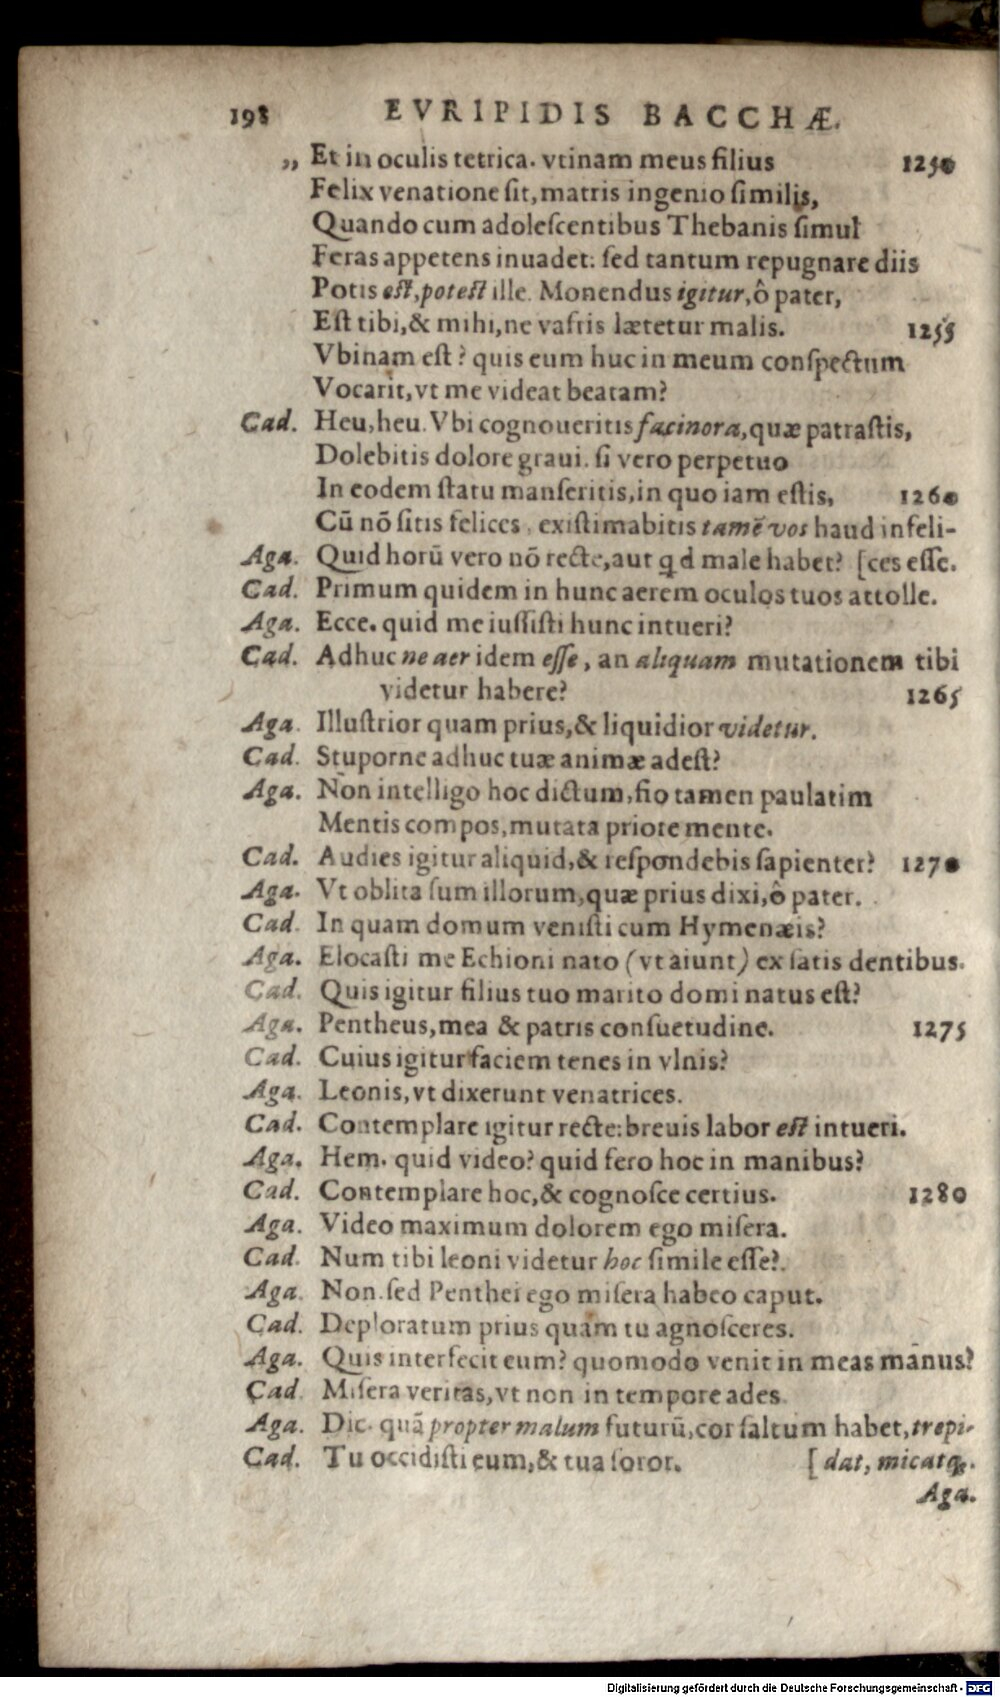 198 EVRIPIDIS BACCHÆ.
„ Et in oculis tetrica. vtinam meus filius 1250
Felix venatione sit, matris ingenio similis,
Quando cum adolescentibus Thebanis simul
Feras appetens inuadet: sed tantum repugnare diis
Potis est, potest ille. Monendus igitur, ô pater,
Est tibi, & mihi, ne vafris lætetur malis. 1255
Vbinam est? quis eum huc in meum conspectum
Vocarit, vt me videat beatam?
Cad. Heu, heu. Vbi cognoueritis facinora, quæ patrastis,
Dolebitis dolore graui. si vero perpetuo
In eodem statu manseritis, in quo iam estis, 1260
Cū nō sitis felices, existimabitis tamē vos haud infeli-
Aga. Quid horū vero nō recte, aut qd male habet? [ces esse.
Cad. Primum quidem in hunc aerem oculos tuos attolle.
Aga. Ecce. quid me iussisti hunc intueri?
Cad. Adhuc ne aer idem esse, an aliquam mutationem tibi
videtur habere? 1265
Aga. Illustrior quam prius, & liquidior videtur.
Cad. Stuporne adhuc tuæ animæ adest?
Aga. Non intelligo hoc dictum, fio tamen paulatim
Mentis compos, mutata priore mente.
Cad. Audies igitur aliquid, & respondebis sapienter? 1270
Aga. Vt oblita sum illorum, quæ prius dixi, ô pater.
Cad. In quam domum venisti cum Hymenæis?
Aga. Elocasti me Echioni nato (vt aiunt) ex satis dentibus.
Cad. Quis igitur filius tuo marito domi natus est?
Aga. Pentheus, mea & patris consuetudine. 1275
Cad. Cuius igitur faciem tenes in vlnis?
Aga. Leonis, vt dixerunt venatrices.
Cad. Contemplare igitur recte: breuis labor est intueri.
Aga. Hem. quid video? quid fero hoc in manibus?
Cad. Contemplare hoc, & cognosce certius. 1280
Aga. Video maximum dolorem ego misera.
Cad. Num tibi leoni videtur hoc simile esse?
Aga. Non. sed Penthei ego misera habeo caput.
Cad. Deploratum prius quam tu agnosceres.
Aga. Quis interfecit eum? quomodo venit in meas manus?
Cad. Misera veritas, vt non in tempore ades.
Aga. Dic. quā propter malum futurū, cor saltum habet, trepi-
Cad. Tu occidisti eum, & tua soror. [dat, micatq₃.
Aga.
Digitalisierung gefördert durch die Deutsche Forschungsgemeinschaft - DFG